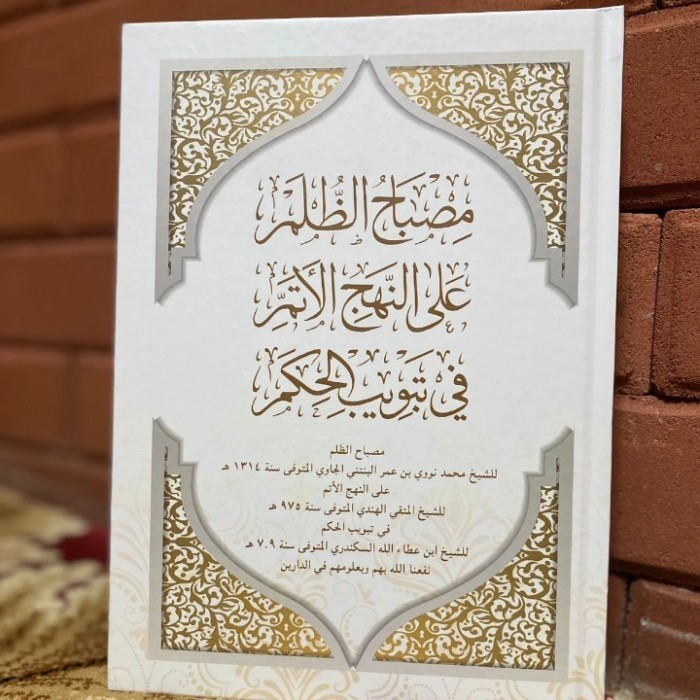 مِصْبَاحُ الظُّلَمِ
عَلَى النَّهَجِ الأَتَمِّ
فِي تَبْوِيبِ الحِكَمِ
مصباح الظلم
للشيخ محمد نووي بن عمر البنتني الجاوي المتوفى سنة ١٣١٤ هـ
على النهج الأتم
للشيخ المتقي الهندي المتوفى سنة ٩٧٥ هـ
في تبويب الحكم
للشيخ ابن عطاء الله السكندري المتوفى سنة ٧٠٩ هـ
نفعنا الله بهم وبعلومهم في الدارين